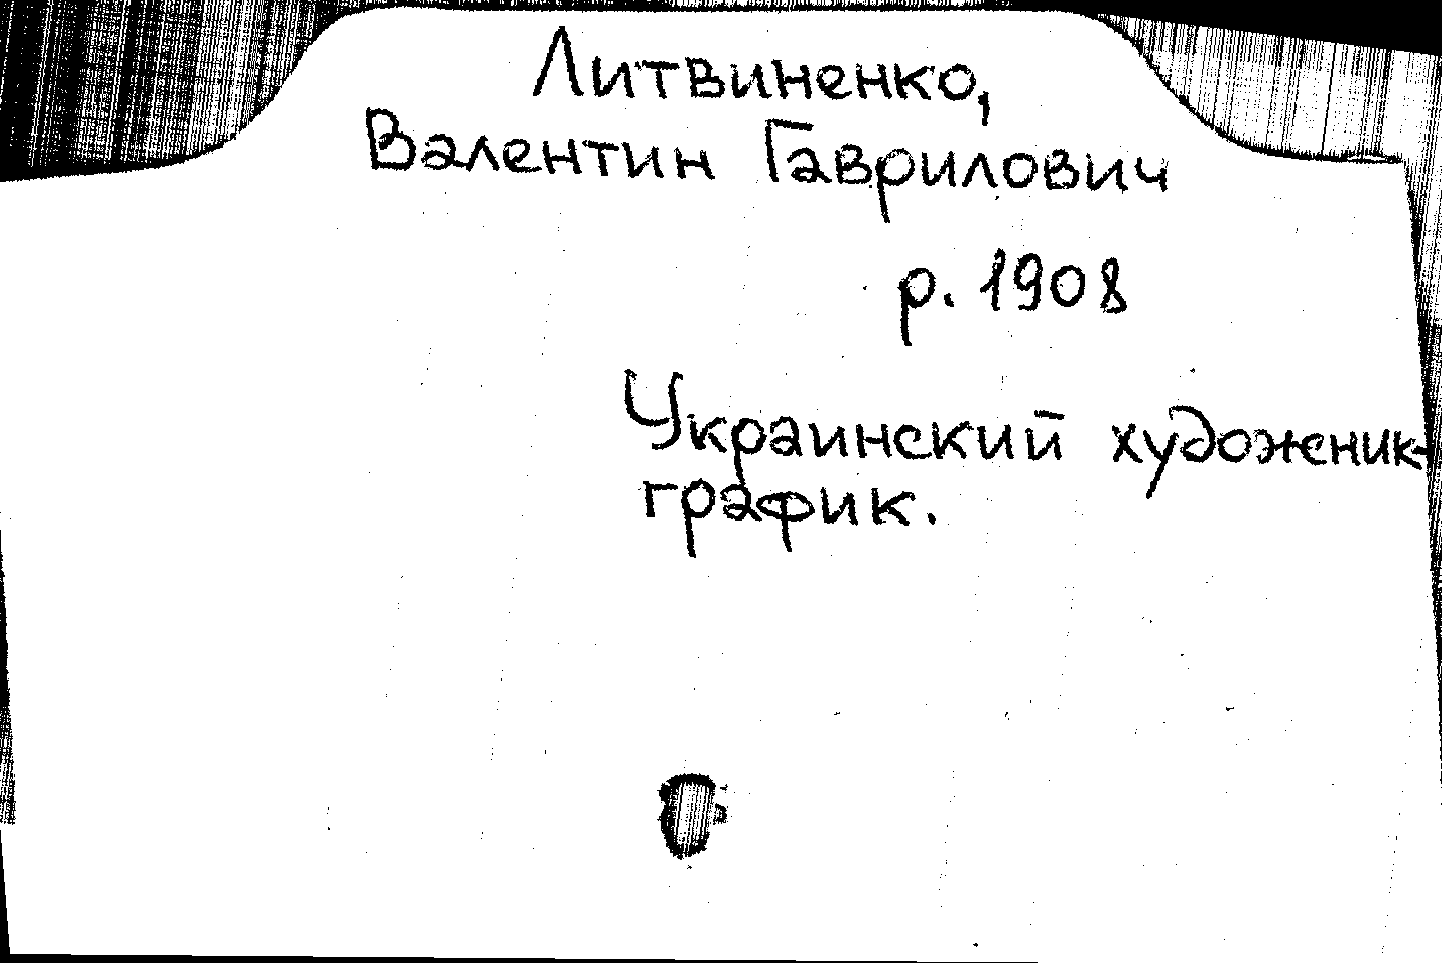 Литвиненко,
Валентин Гаврилович
р. 1908
Украинский художник-
график.